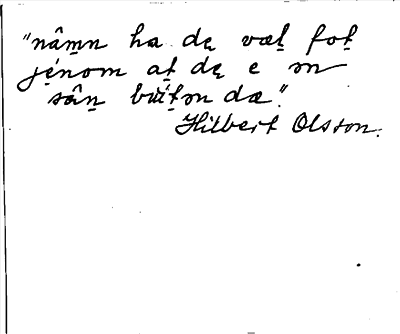 "nâm̠n ha dę væt̠ fot̠
jénom at̠ dę e ɘn
sân̠ bŭít̠ɘn dæ."
Hilbert Olsson.